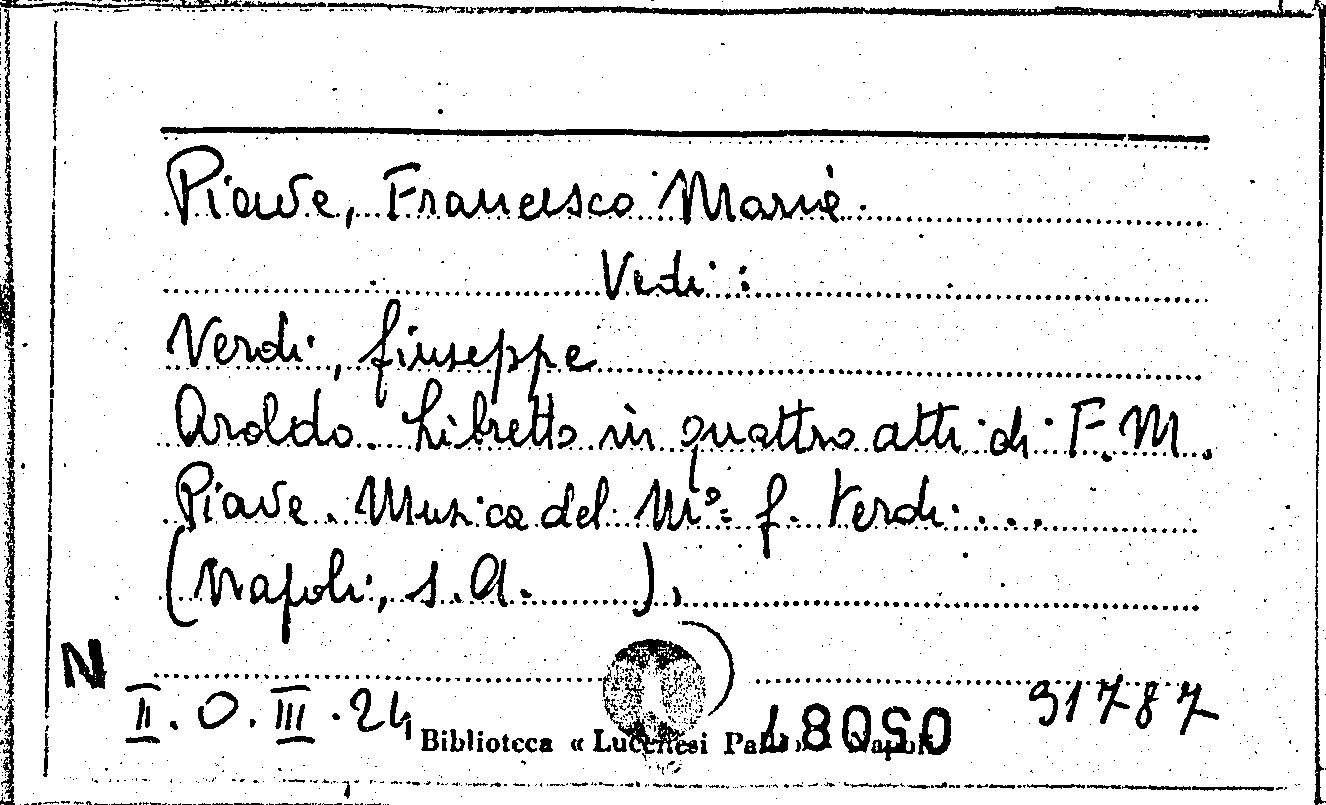 Piave, Francesco Maria.
Vedi:
Verdi, Giuseppe
Aroldo. Libretto in quattro atti di F. M.
Piave. Musica del M.º G. Verdi....
(Napoli, s.a. ).
N
II. O. III. 24
91787
Biblioteca « Lucchesi Palli » Napoli